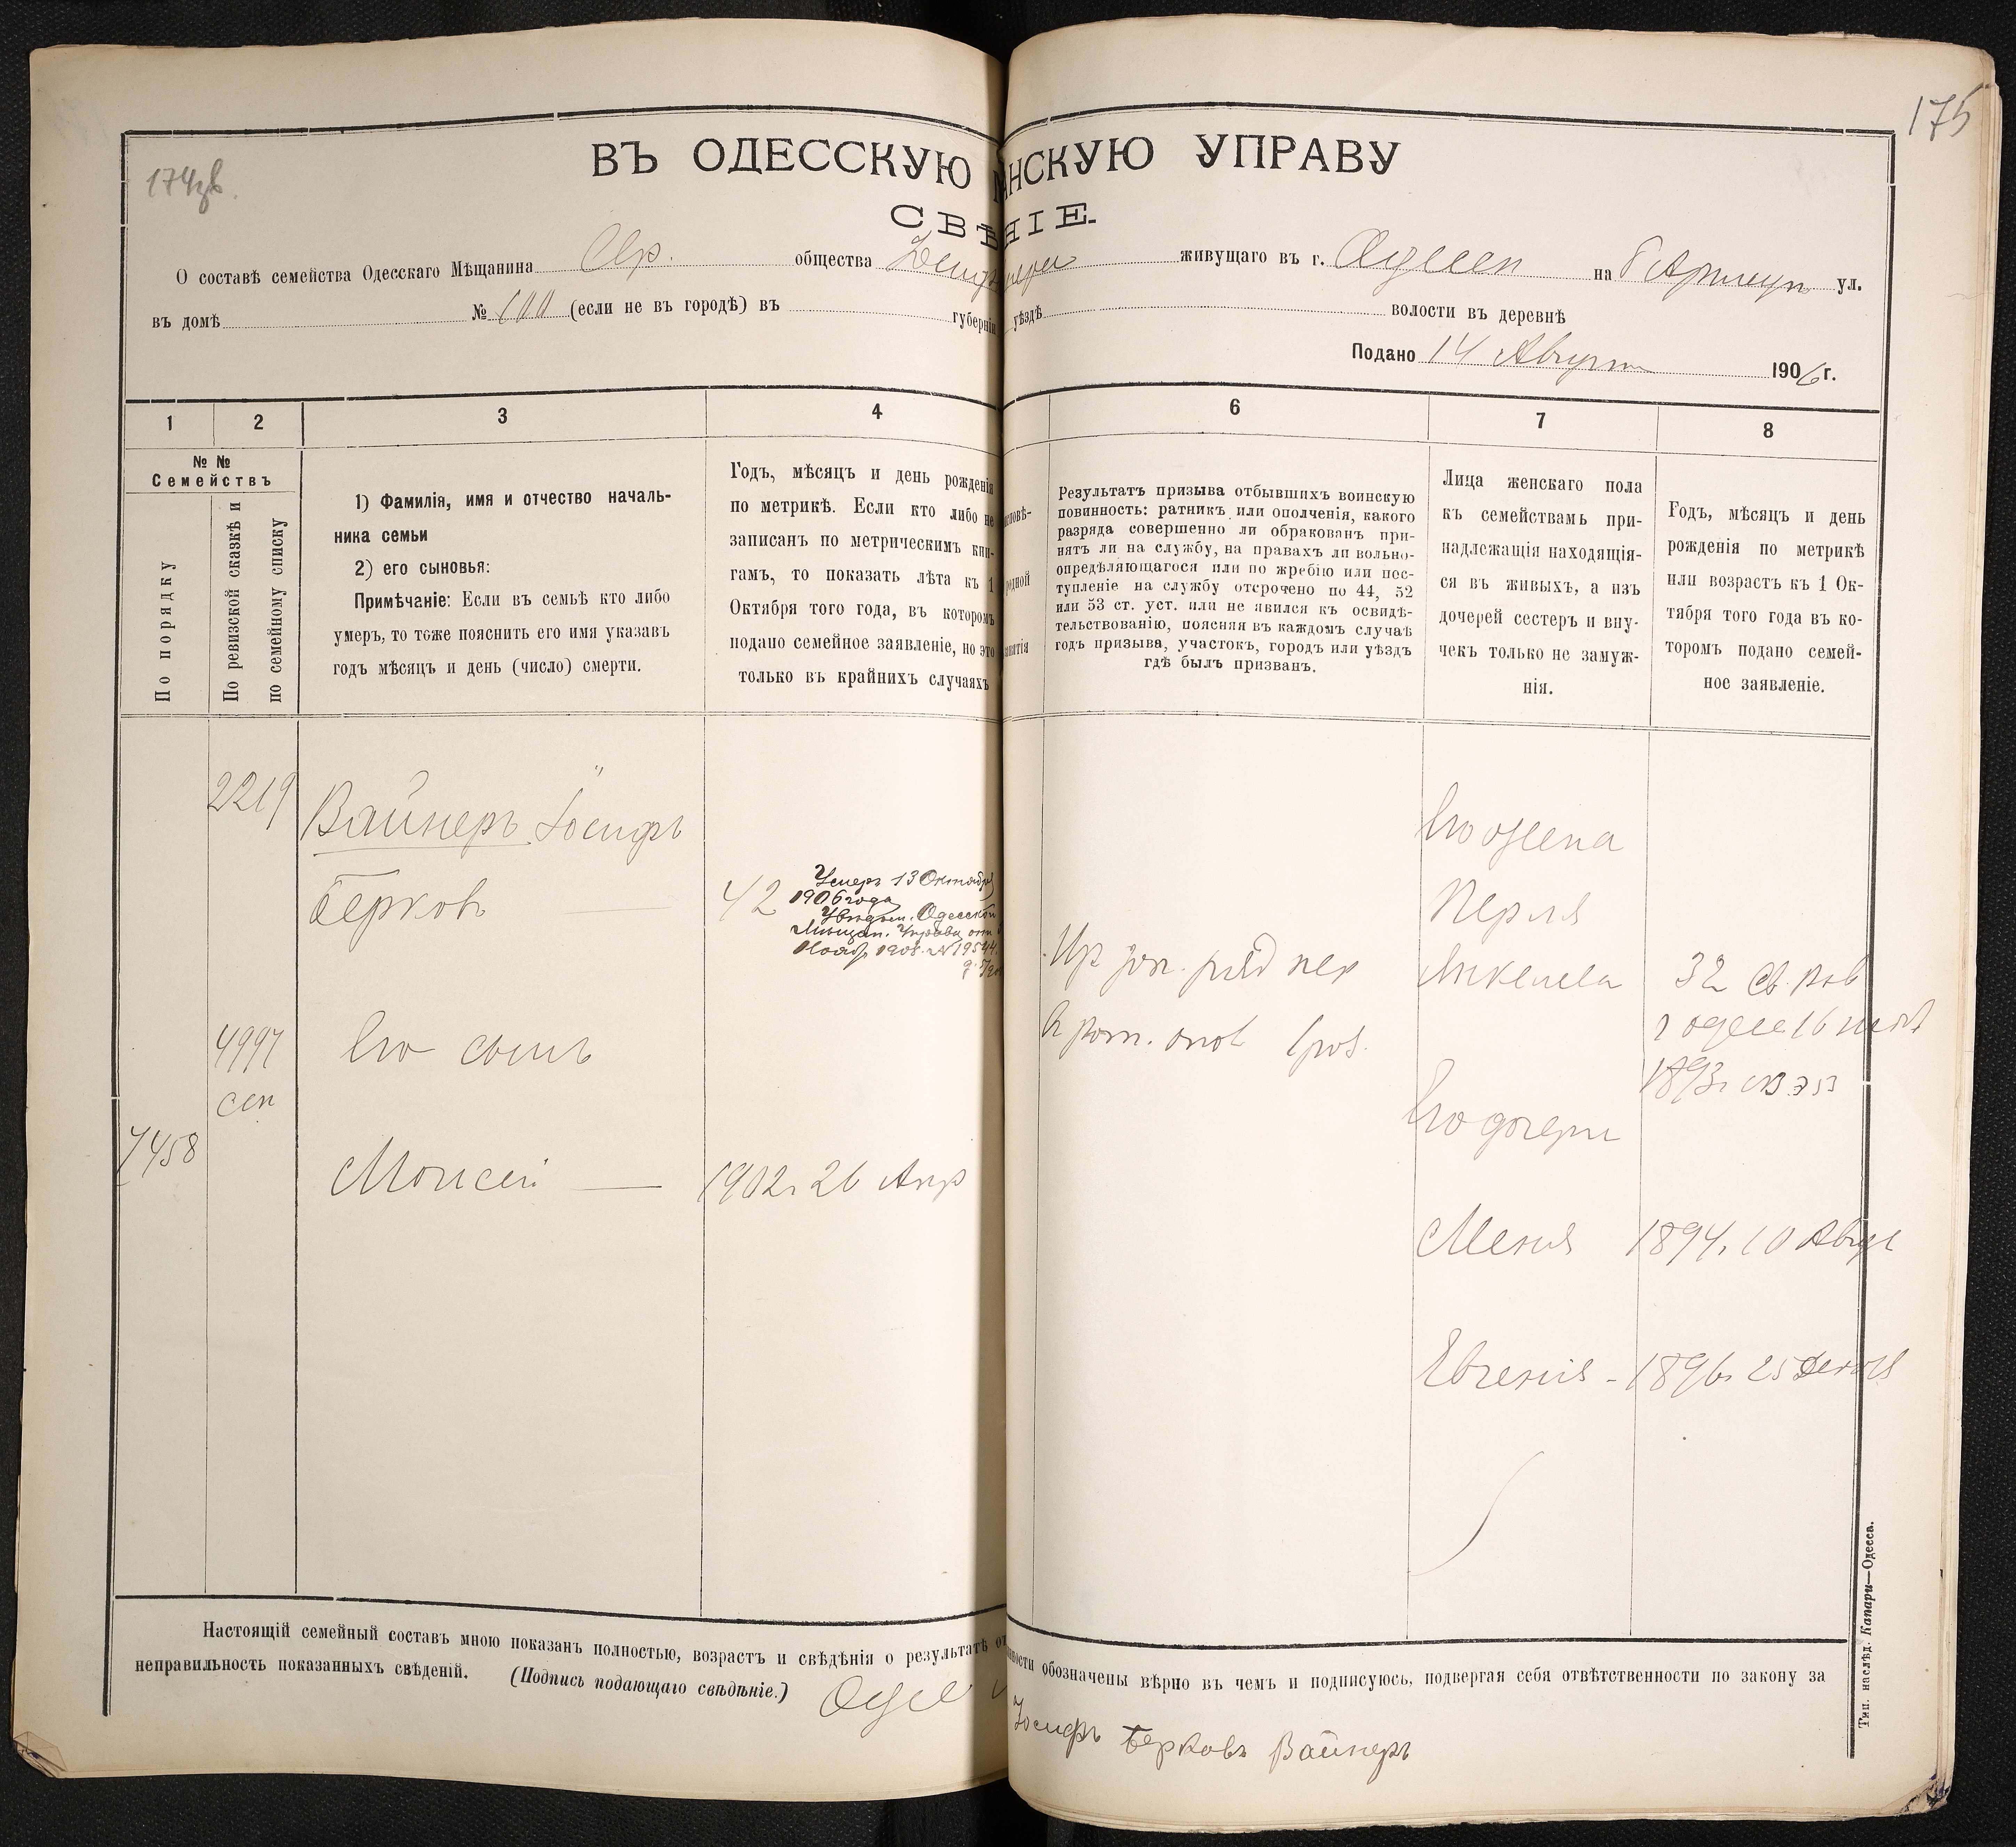 175
174зв.
ВЪ ОДЕССКУЮ НСКУЮ УПРАВУ
СВѢ НІЕ.
О составѣ семейства Одесскаго Мѣщанина Евр. общества живущаго въ г. Одессѣ на ул.
въ домѣ № 100 (если не въ городѣ) въ губерніи уѣздѣ волости въ деревнѣ
Подано 14 Августа 1906 г.
1 2 3 4 6 7 8
№ №
Семействъ
По порядку
По ревизской сказкѣ и
по семейному списку
1) Фамилія, имя и отчество началь-
ника семьи
2) его сыновья:
Примѣчаніе: Если въ семьѣ кто либо
умеръ, то тоже пояснить его имя указавъ
годъ мѣсяцъ и день (число) смерти.
Годъ, мѣсяцъ и день рожденія
по метрикѣ. Если кто либо не
записанъ по метрическимъ кни-
гамъ, то показать лѣта къ 1
Октября того года, въ которомъ
подано семейное заявленіе, но это
только въ крайнихъ случаяхъ
Результатъ призыва отбывшихъ воинскую
повинность: ратникъ или ополченія, какого
разряда совершенно ли обракованъ при-
нятъ ли на службу, на правахъ ли вольно-
опредѣляющагося или по жребію или пос-
тупленіе на службу отсрочено по 44, 52
или 53 ст. уст. или не явился къ освидѣ-
тельствованію, поясняя въ каждомъ случаѣ
годъ призыва, участокъ, городъ или уѣздъ
гдѣ былъ призванъ.
Лица женскаго пола
къ семействамъ при-
надлежащія находящія-
ся въ живыхъ, а изъ
дочерей сестеръ и вну-
чекъ только не замуж-
нія.
Годъ, мѣсяцъ и день
рожденія по метрикѣ
или возрастъ къ 1 Ок-
тября того года въ ко-
торомъ подано семей-
ное заявленіе.
2219
Вайнеръ Іосифъ
Берковъ — 42
Умеръ 13 Октября
1906 года
Увѣдом. Одесской
Мѣщан. Управы отъ
Нояб. 1908. № 19544
4997
сем
Его сынъ
7458
Моисей — 1902г 26 Апр
Его жена
Перля
Янкелева 32
1893г
Его дочери
Меня 1894г 10 Авгус
Евгенія - 1896г 25 Декаб
Настоящій семейный составъ мною показанъ полностью, возрастъ и свѣдѣнія о результатѣ обозначены вѣрно въ чемъ и подписуюсь, подвергая себя отвѣтственности по закону за
неправильность показанныхъ свѣдѣній. (Подпись подающаго свѣдѣніе.)
Іосифъ Берковъ Вайнеръ
Тип. наслѣд. Капари—Одесса.